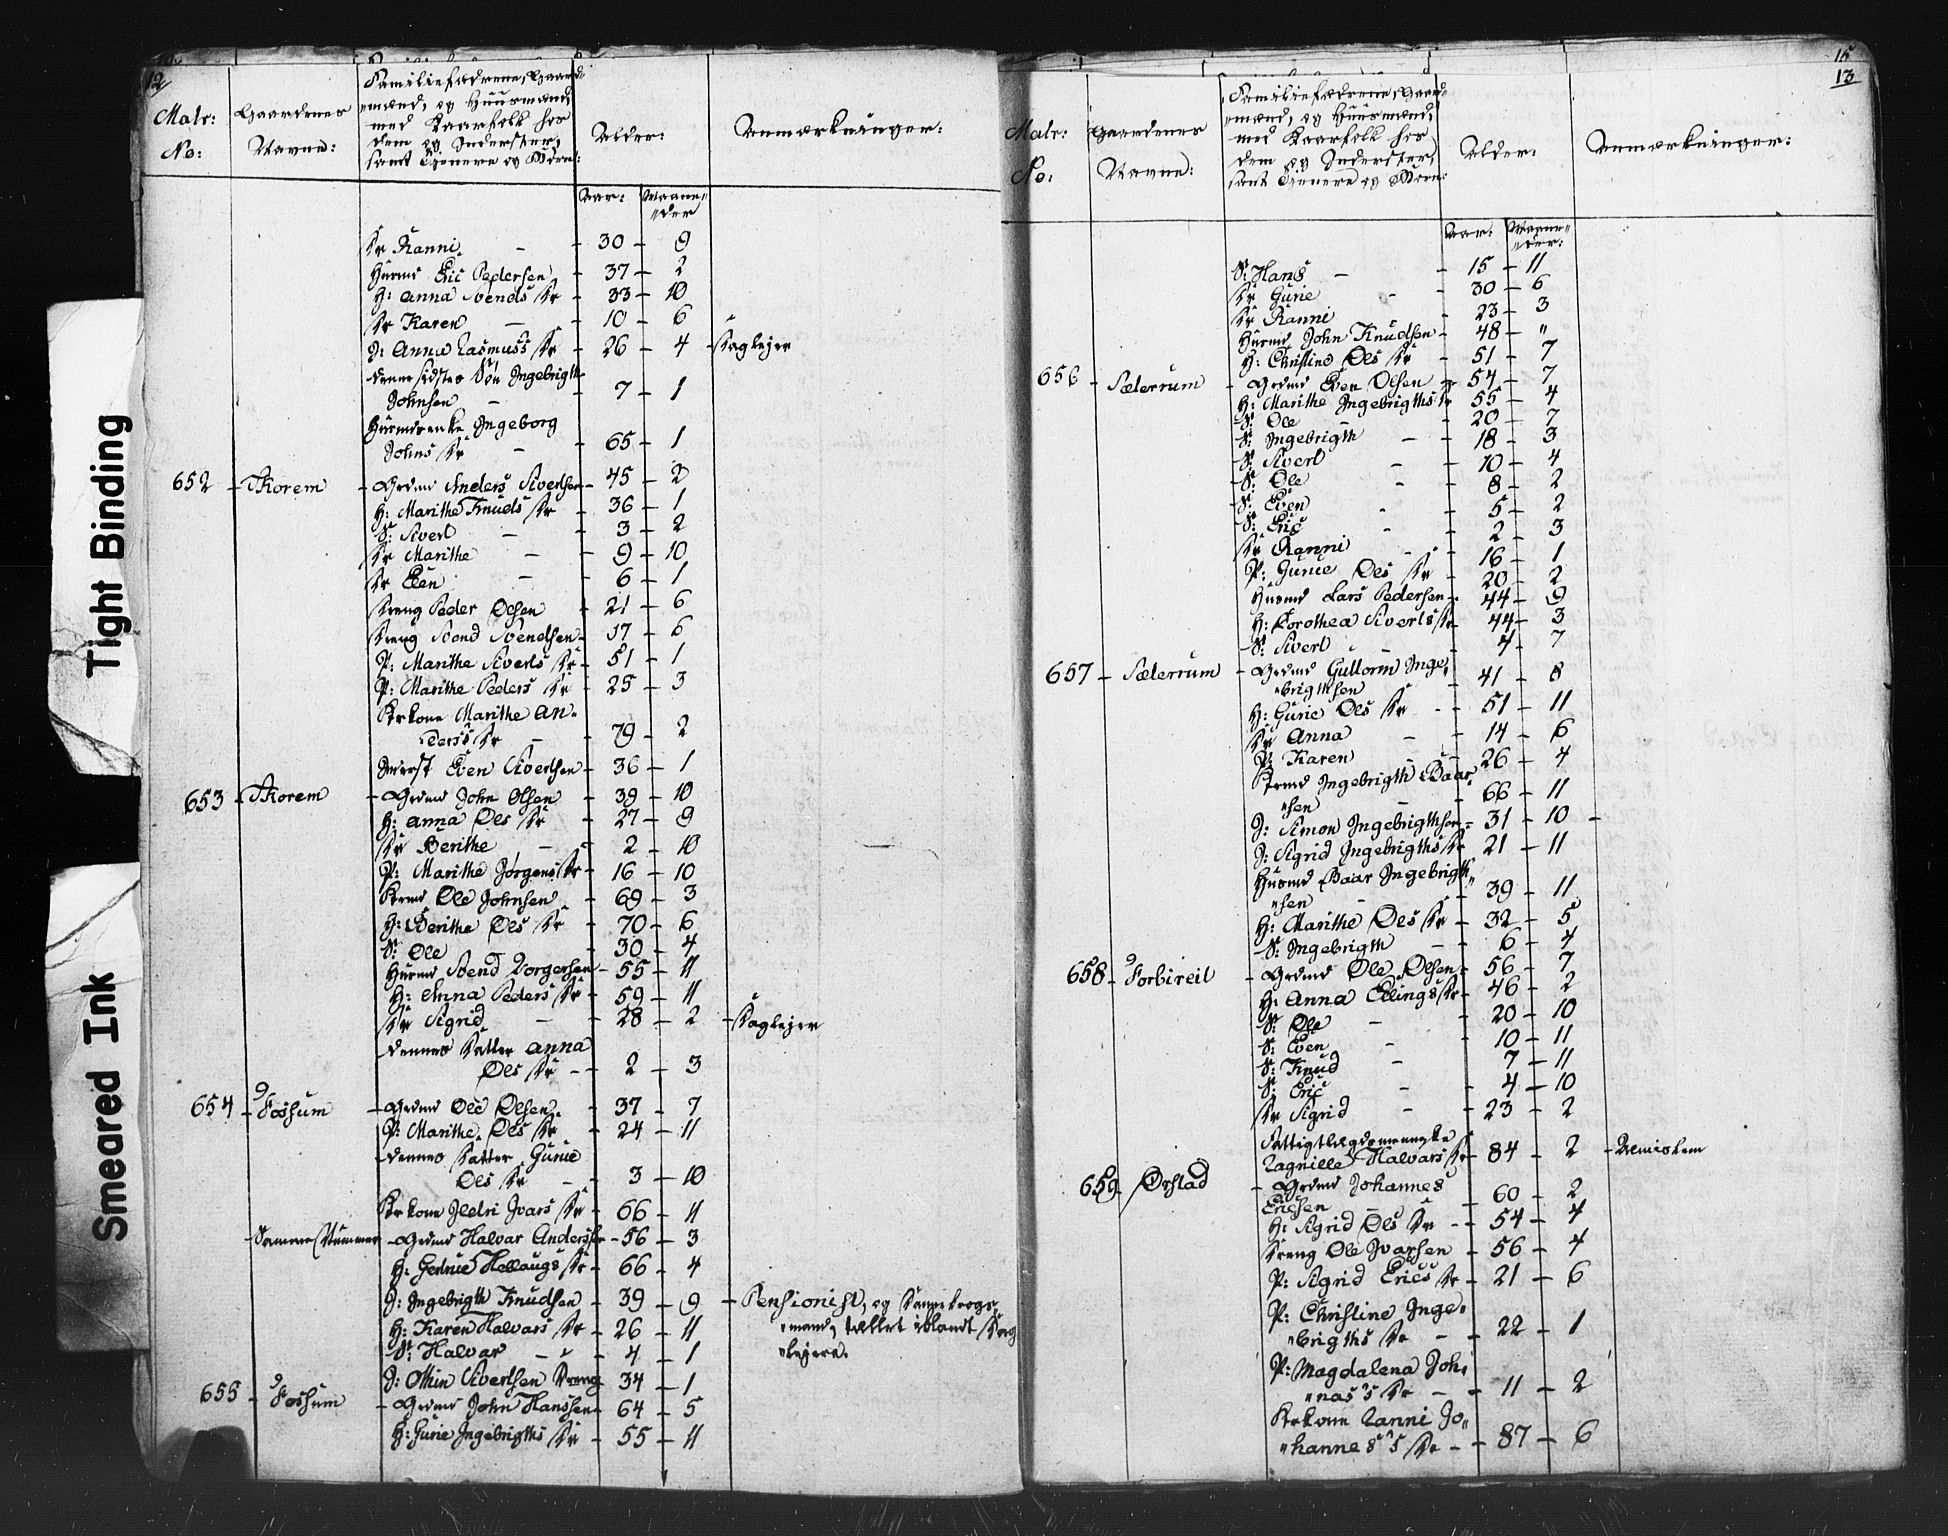 12
Matr: No:
Gaardenes Navne:
Familiefædrene, Gaard-
mænd, og Huusmænd,
med Kaarfolk hos
dem og Inderster,
samt Tienere og Børn:
Alder:
Anmærkninger:
Aar: Maane-
der
Dr Ranni - 30 - 9
Huusmd Eric Pedersen - 37 - 2
H: Anna Svends Dr - 33 - 10
Dr Karen - 10 - 6
J: Anna Rasmuss Dr - 26 - 4 - Daglejer
dennes sidstes Søn Ingebrigth
Johnsen - 7 - 1
Huusmdsenke Ingeborg
Johns Dr - 65 - 1
652 - Skorem - Grdmd Anders Sivertsen - 45 - 2
H: Marithe Knuds Dr - 36 - 1
S: Sivert - 3 - 2
Dr Marithe - 9 - 10
Dr Elen - 6 - 1
Dreng Peder Olsen - 21 - 6
Dreng Svend Svendsen - 17 - 6
P: Marithe Siverts Dr - 51 - 1
P: Marithe Peders Dr - 25 - 3
Krkone Marithe An-
derss Dr - 79 - 2
Inderst Even Sivertsen - 36 - 1
653 - Skorem - Grdmd John Olsen - 39 - 10
H: Anna Ols Dr - 27 - 9
Dr Berithe - 2 - 10
P: Marithe Jørgens Dr - 16 - 10
Krmd Ole Johnsen - 69 - 3
H: Berithe Ols Dr - 70 - 6
S: Ole - 30 - 4
Huusmd Svend Torgersen - 55 - 11
H: Anna Peders Dr - 59 - 11
Dr Sigrid - 28 - 2 - Daglejer
dennes Datter Anna
Ols Dr - 2 - 3
654 - Fossum - Grdmd Ole Olsen - 37 - 7
P: Marithe Ols Dr - 24 - 11
dennes Datter Gurie
Ols Dr - 3 - 10
Krkone Ildri Ivars Dr - 66 - 11
Samme Nummer - Grdmd Halvar Anderssen - 56 - 3
H: Gertrue Hellaugs Dr - 66 - 4
J: Ingebrigth Knudsen - 39 - 9 - Pensionist, og Dannebrogs-
H: Karen Halvars Dr - 26 - 11 mand, tællet iblandt Dag-
S: Halvar - 4 - 1 lejere.
J: Othin Sivertsen Dreng 34 - 1
655 - Fossum - Grdmd John Hanssen - 64 - 5
H: Gurie Ingebrigths Dr - 55 - 11
15
13
Matr: No:
Gaardenes Navne:
Familiefædrene, Gaard-
mænd, og Huusmænd,
med Kaarfolk hos
dem og Inderster,
samt Tienere og Børn:
Alder:
Anmærkninger:
Aar: Maane-
der:
S: Hans - 15 - 11
Dr Gurie - 30 - 6
Dr Ranni - 23 - 3
Huusmd John Knudsen - 48 - "
H: Christine Ols Dr - 51 - 7
656 - Sæterrum - Grdmd Even Olsen - 54 - 7
H: Marithe Ingebrigths Dr 55 - 4
S: Ole - 20 - 7
S: Ingebrigth - 18 - 3
S: Sivert - 10 - 4
S: Ole - 8 - 2
S: Even - 5 - 2
S: Eric - 2 - 3
Dr Ranni - 16 - 1
P: Gurie Ols Dr - 20 - 2
Huusmd Lars Pedersen - 44 - 9
H: Dorothea Siverts Dr - 44 - 3
S: Sivert - 4 - 7
657 - Sæterrum - Grdmd Guttorm Inge-
brigthsen - 41 - 8
H: Gurie Ols Dr - 51 - 11
Dr Anna - 14 - 6
P: Karen - 26 - 4
Krmd Ingebrigth Baar-
sen - 66 - 11
J: Simon Ingebrigthsen - 31 - 10 -
J: Sigrid Ingebrigths Dr 21 - 11
Huusmd Baar Ingebrigth-
sen - 39 - 11
H: Marithe Ols Dr - 32 - 5
S: Ingebrigth - 6 - 4
658 - Forbireit - Grdmd Ole Olsen - 56 - 7
H: Anna Ellings Dr - 46 - 2
S: Ole - 20 - 10
S: Even - 10 - 11
S: Knud - 7 - 11
S: Eric - 4 - 10
Dr Sigrid - 23 - 2
Fattiglægdsmenneske
Ragnille Halvars Dr - 84 - 2 - Almislem
659 - Ørstad - Grdmd Johannes
Ericsen - 60 - 2
H: Sigrid Ols Dr - 54 - 4
Dreng Ole Ivarsen - 56 - 4
P: Sigrid Erics Dr - 21 - 6
P: Christine Inge-
brigths Dr - 22 - 1
P: Magdalena Joh-
nas's Dr - 11 - 2
Krkone Ranni Jo-
hannes's Dr - 87 - 6
Tight Binding
Smeared Ink